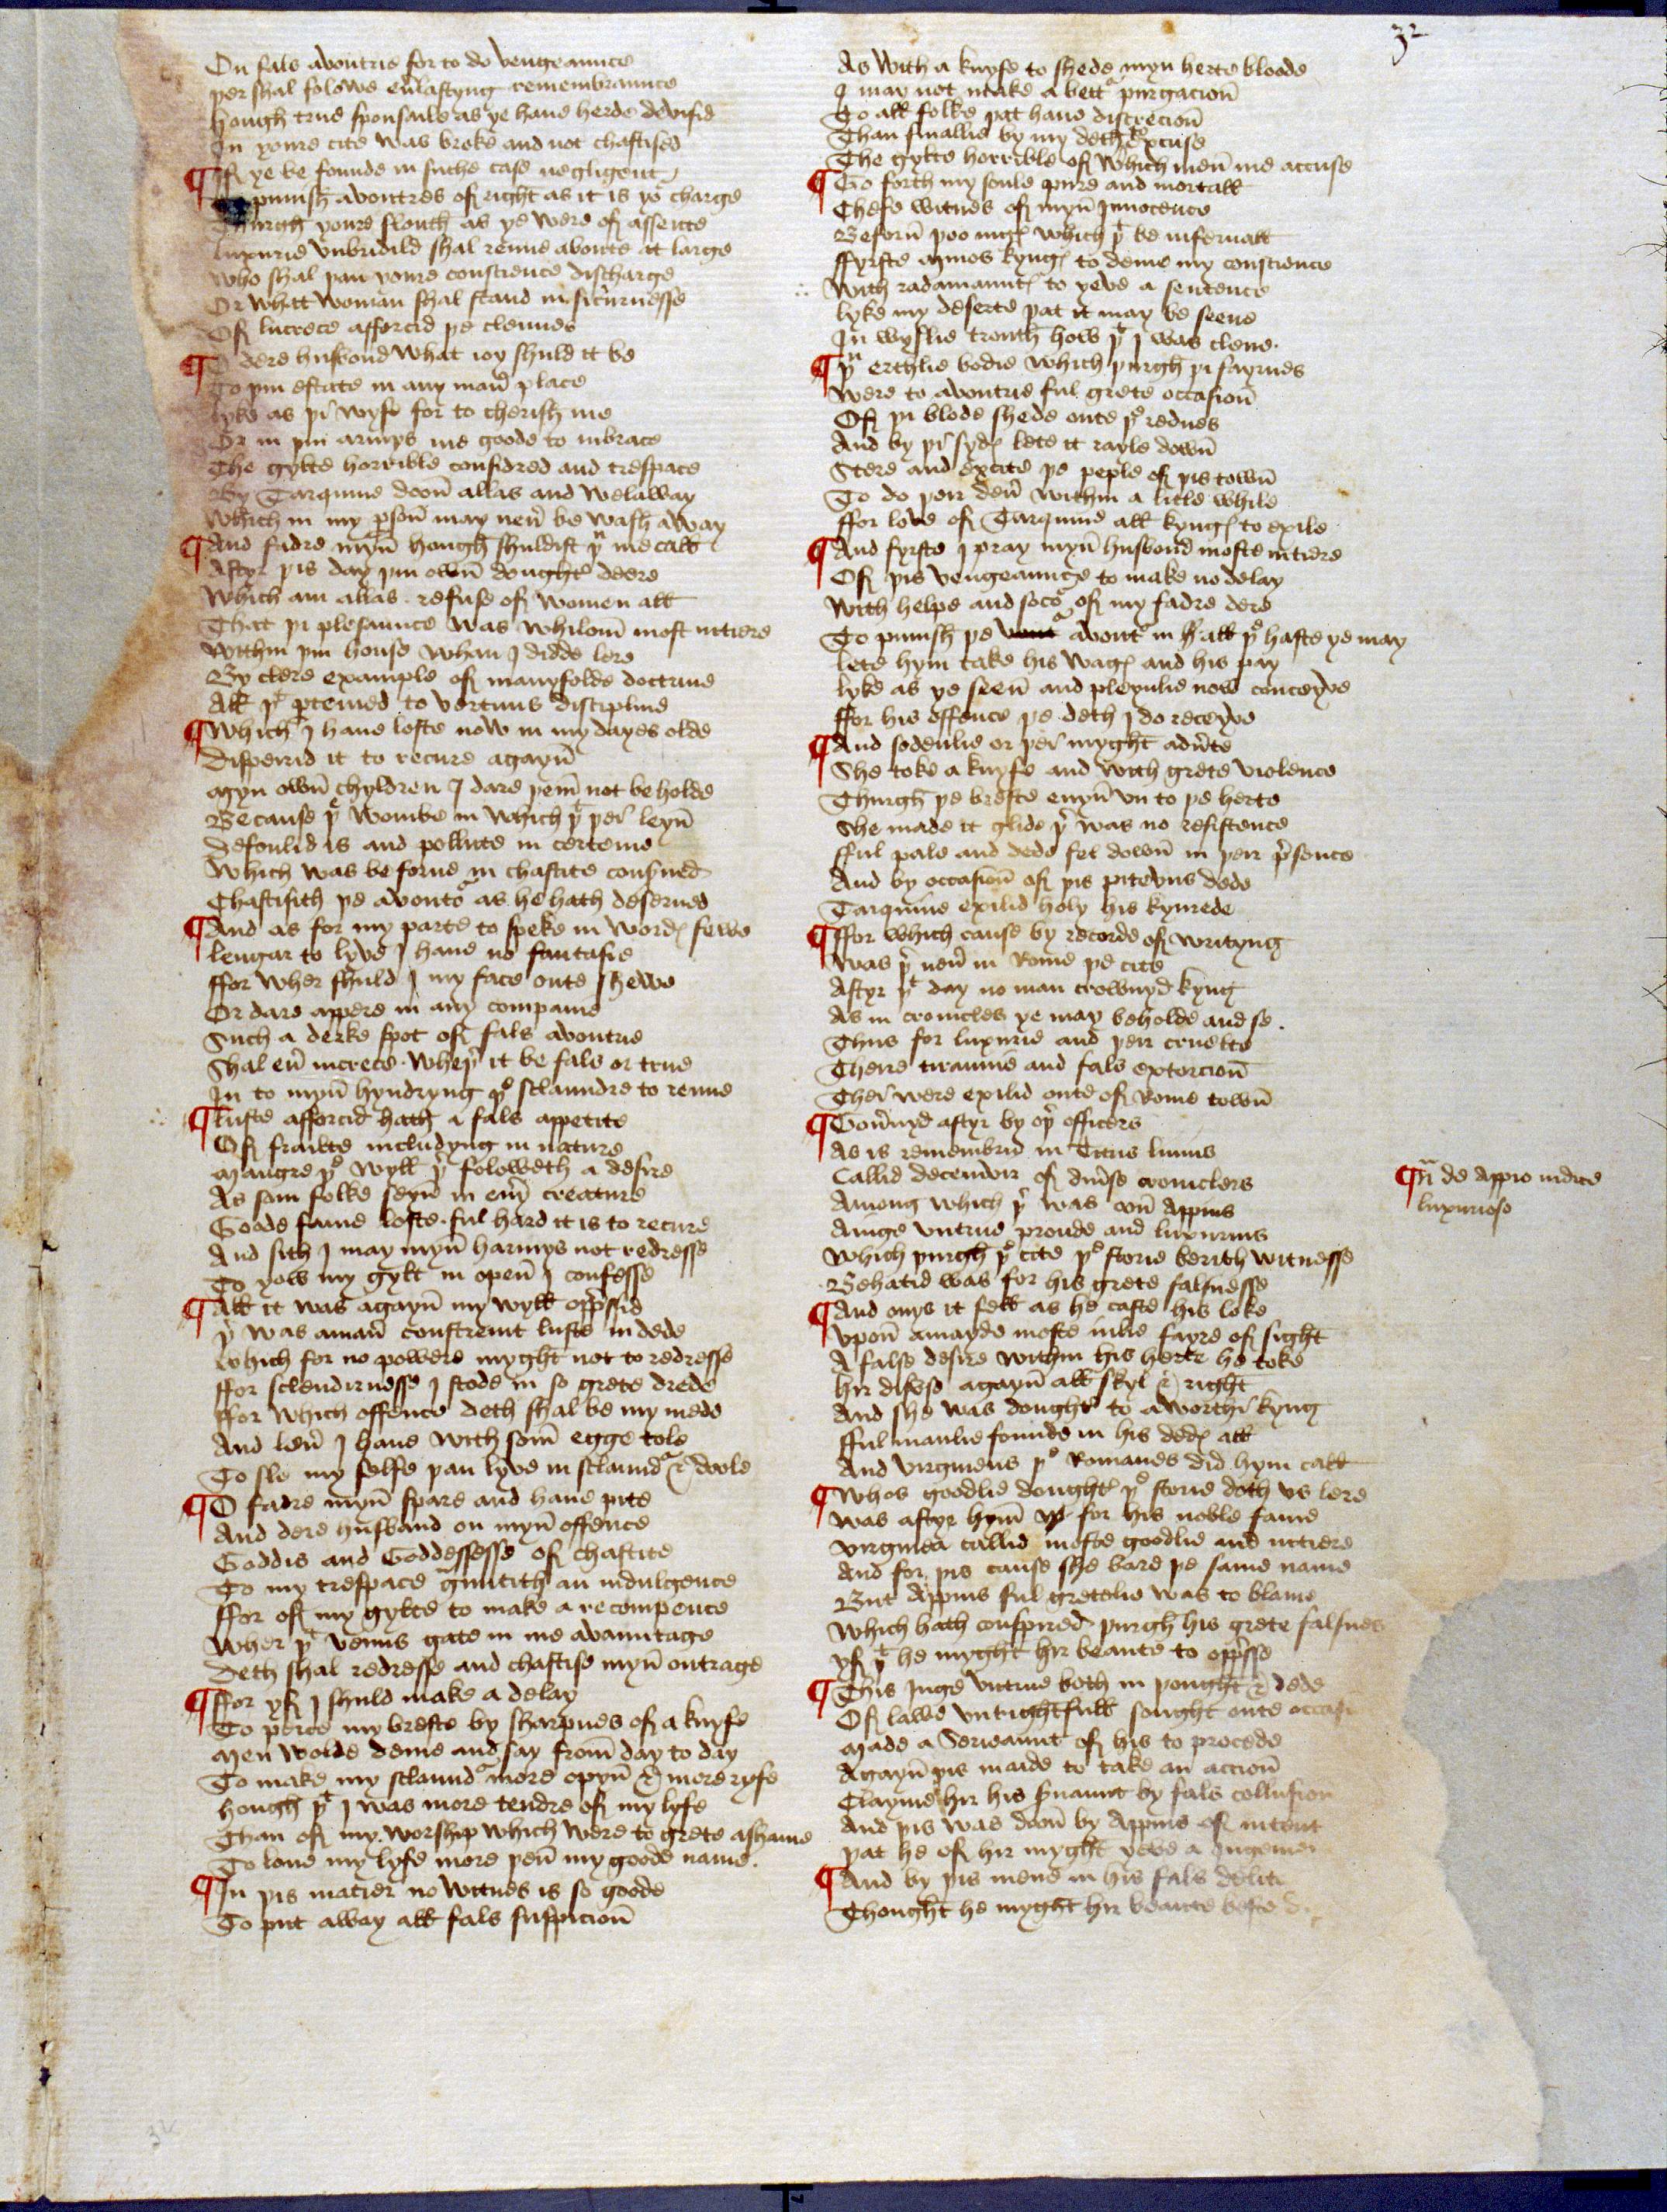 32
On fals avoutrie for to do vengeaunce
þer shal folowe eu̅lastyng remembraunce
hough true sponsaile as ye haue herde devisid
In youre cite was broke and not chastised
¶ If ye be founde in suche case negligent
To punish avoutres of right as it is yor charge
Thurgh youre slouth as ye were of assente
luxurie vnbridild shal renne aboute at large
who shal þan youre conscience discharge
Or what woman shal stand in sicurnesse
Of lucrece afforcid þe clennes
¶ O dere husbond what ioy shuld it be
To þin estate in any man̅ place
lyke as þi wyfe for to cherish me
Or in þin armys me goode to inbrace
The gylte horrible considred and trespace
By Tarquine doon̅ allas and welaway
which in my p̱son̅ may neu̅ be wash away
¶ And fadre myn̅ hough shuldist þu me call
Aftyr þis day þin own̅ doughtᵉ deere
which am allas refuse of women all
That þi plesaunce was whilom̅ most intiere
within þin house whan I didde lere
By clere example of manyfolde doctrine
All þt ꝑteined to vertuus discipline
¶ Which I haue loste now in my dayes olde
Dispeirid it to recure agayn̅
Myn own̅ chyldren I dare þeim̅ not beholde
Because þe wombe in which þt þei leyn̅
Defoulid is and pollute in certeine
Which was beforne in chastite consu̅ed
Chastisith þe avoutor as he hath deserued
¶ And as for my parte to speke in wordꝭ fewe
lengar to lyve I haue no fantasie
ffor wher shuld I my face oute shewe
Or dare appere in any companie
Such a derke spot of fals avoutrie
Shal eu̅ increce wheþr it be fals or true
In to myn̅ hyndryng þe sclaundre to renne
¶ luste afforcid hath a fals appetite
Of frailte includyng in nature
Maugre þe wyll þr foloweth a desire
As som folke seyn̅ in eu̅y creature
Goode fame loste ful hard it is to recure
And sith I may myn̅ harmys not redresse
To yow my gylt in open̅ I confesse
¶ All it was agayn̅ my wyll opp̅ssid
þr was a man̅ constreint luste in dede
which for no powere myght not to redresse
ffor sclendirnesse I stode in so grete drede
ffor which offence deth shal be my mede
And leu̅ I haue with som̅ egge tole
To sle my selfe þan lyve in sclaundr & doole
¶ O fadre myn̅ spare and haue pite
And dere husband on myn̅ offence
Goddis and Goddessesse of chastite
To my trespace gᵃuntith an indulgence
ffor of my gylte to make a recompence
Wher þt venus gate in me avauntage
Deth shal redresse and chastise myn̅ outrage
¶ ffor yf I shuld make a delay
To perce my breste by sharpnes of a knyfe
Men wolde deme and say from̅ day to day
To make my sclaundr more opyn̅ & more ryfe
hough þt I was more tendre of my lyfe
Than of my worship which were to grete a shame
To loue my lyfe more þen̅ my goode name.
¶ In þis matier no witnes is so goode
To put away all fals suspicion̅
As with a knyfe to shede myn herte bloode
I may not make a bettr purgacion̅
To all folke þat haue discrecion̅
Than finallie by my deth to excuse
The gylte horrible of which men̅ me accuse
¶ Go forth my soule pure and mortall
Chefe witnes of myn̅ Innocence
Beforn̅ þoo iugꝭ which þt be infernall
ffyrste mynos kyngꝭ to deme my conscience
with radamauntꝭ to yeve a sentence
lyke my deserte þat it may be seene
In wyflie trouth how þt I was clene.
¶ þu erthlie bodie which þurgh þi fayrnes
Were to avoutrie ful grete occasion̅
Of þi blode shede oute þe rednes
And by þi sydꝭ lete it rayle down̅
Stere and excite þe peple of þis town̅
To do þeir deu̅ within a litle while
ffor love of Tarquine all kyngꝭ to exile
¶ And fyrste I pray myn̅ husbond moste intiere
Of þis vengeaunce to make no delay
with helpe and socor of my fadre dere
To punish þe avoutr in all þe haste ye may
lete hym take his wagꝭ and his pay
lyke as ye seen̅ and pleynlie now conceyve
ffor his offence þe deth I do receyve
¶ And sodenlie or þei myght adu̅te
She toke a knyfe and with grete violence
Thurgh þe breste euyn̅ vn to þe herte
She made it glide þr was no resistence
fful pale and dede fel down̅ in þeir p̅sence
And by occasion̅ of þis piteuus dede
Tarquine exilid holy his kynrede
¶ ffor which cause by recorde of writyng
was þr neu̅ in Rome þe cite
Aftyr þt day no man crownyd kyng
As in cronicles ye may beholde and se.
Thus for luxurie and þeir cruelte
Theire tirannie and fals extorcion̅
Thei were exilid oute of Rome town̅
¶ Gou̅nyd aftyr by oþr officers
As is remembrid in Titus liuius
Callid decemvir of diu̅se croniclers
Among which þr was oon̅ Appius
A iuge vntrue proude and luxurius
Which þurgh þe cite þe storie berith witnesse
Behatid was for his grete falsnesse
¶ And onys it fell as he caste his loke
vpon̅ a mayde moste fayre of sight
A false desire within his herte he toke
hir disese agayn̅ all skyl & right
And she was doughtr to a worthi kyng
fful manlie founde in his dedꝭ all
And virgineus þe Romanes did hym call
¶ Whos goodlie doughtr þe storie doth vs lere
Was aftyr hym̅ for his noble fame
virginea callid moste goodlie and intiere
And for þis cause she bare þe same name
But Appius ful gretelie was to blame
Which hath conspired þurgh his grete falsnes
yf þt he myght hir beaute to opp̅sse
¶ This Juge vntrue both in þought & dede
Of lawe vnrightfull sought oute occasi
Made a Serieaunt of his to procede
Agayn̅ þis maide to take an accion̅
Clayme hir his s̅uaunt by fals collusion
And þis was doon̅ by Appius of intent
þat he of hir myght yeve a Jugemen
¶ And by þis mene in his fals delite
Thought he myght hir beaute beste
¶ N̅ de Appio iudice
luxurioso
32